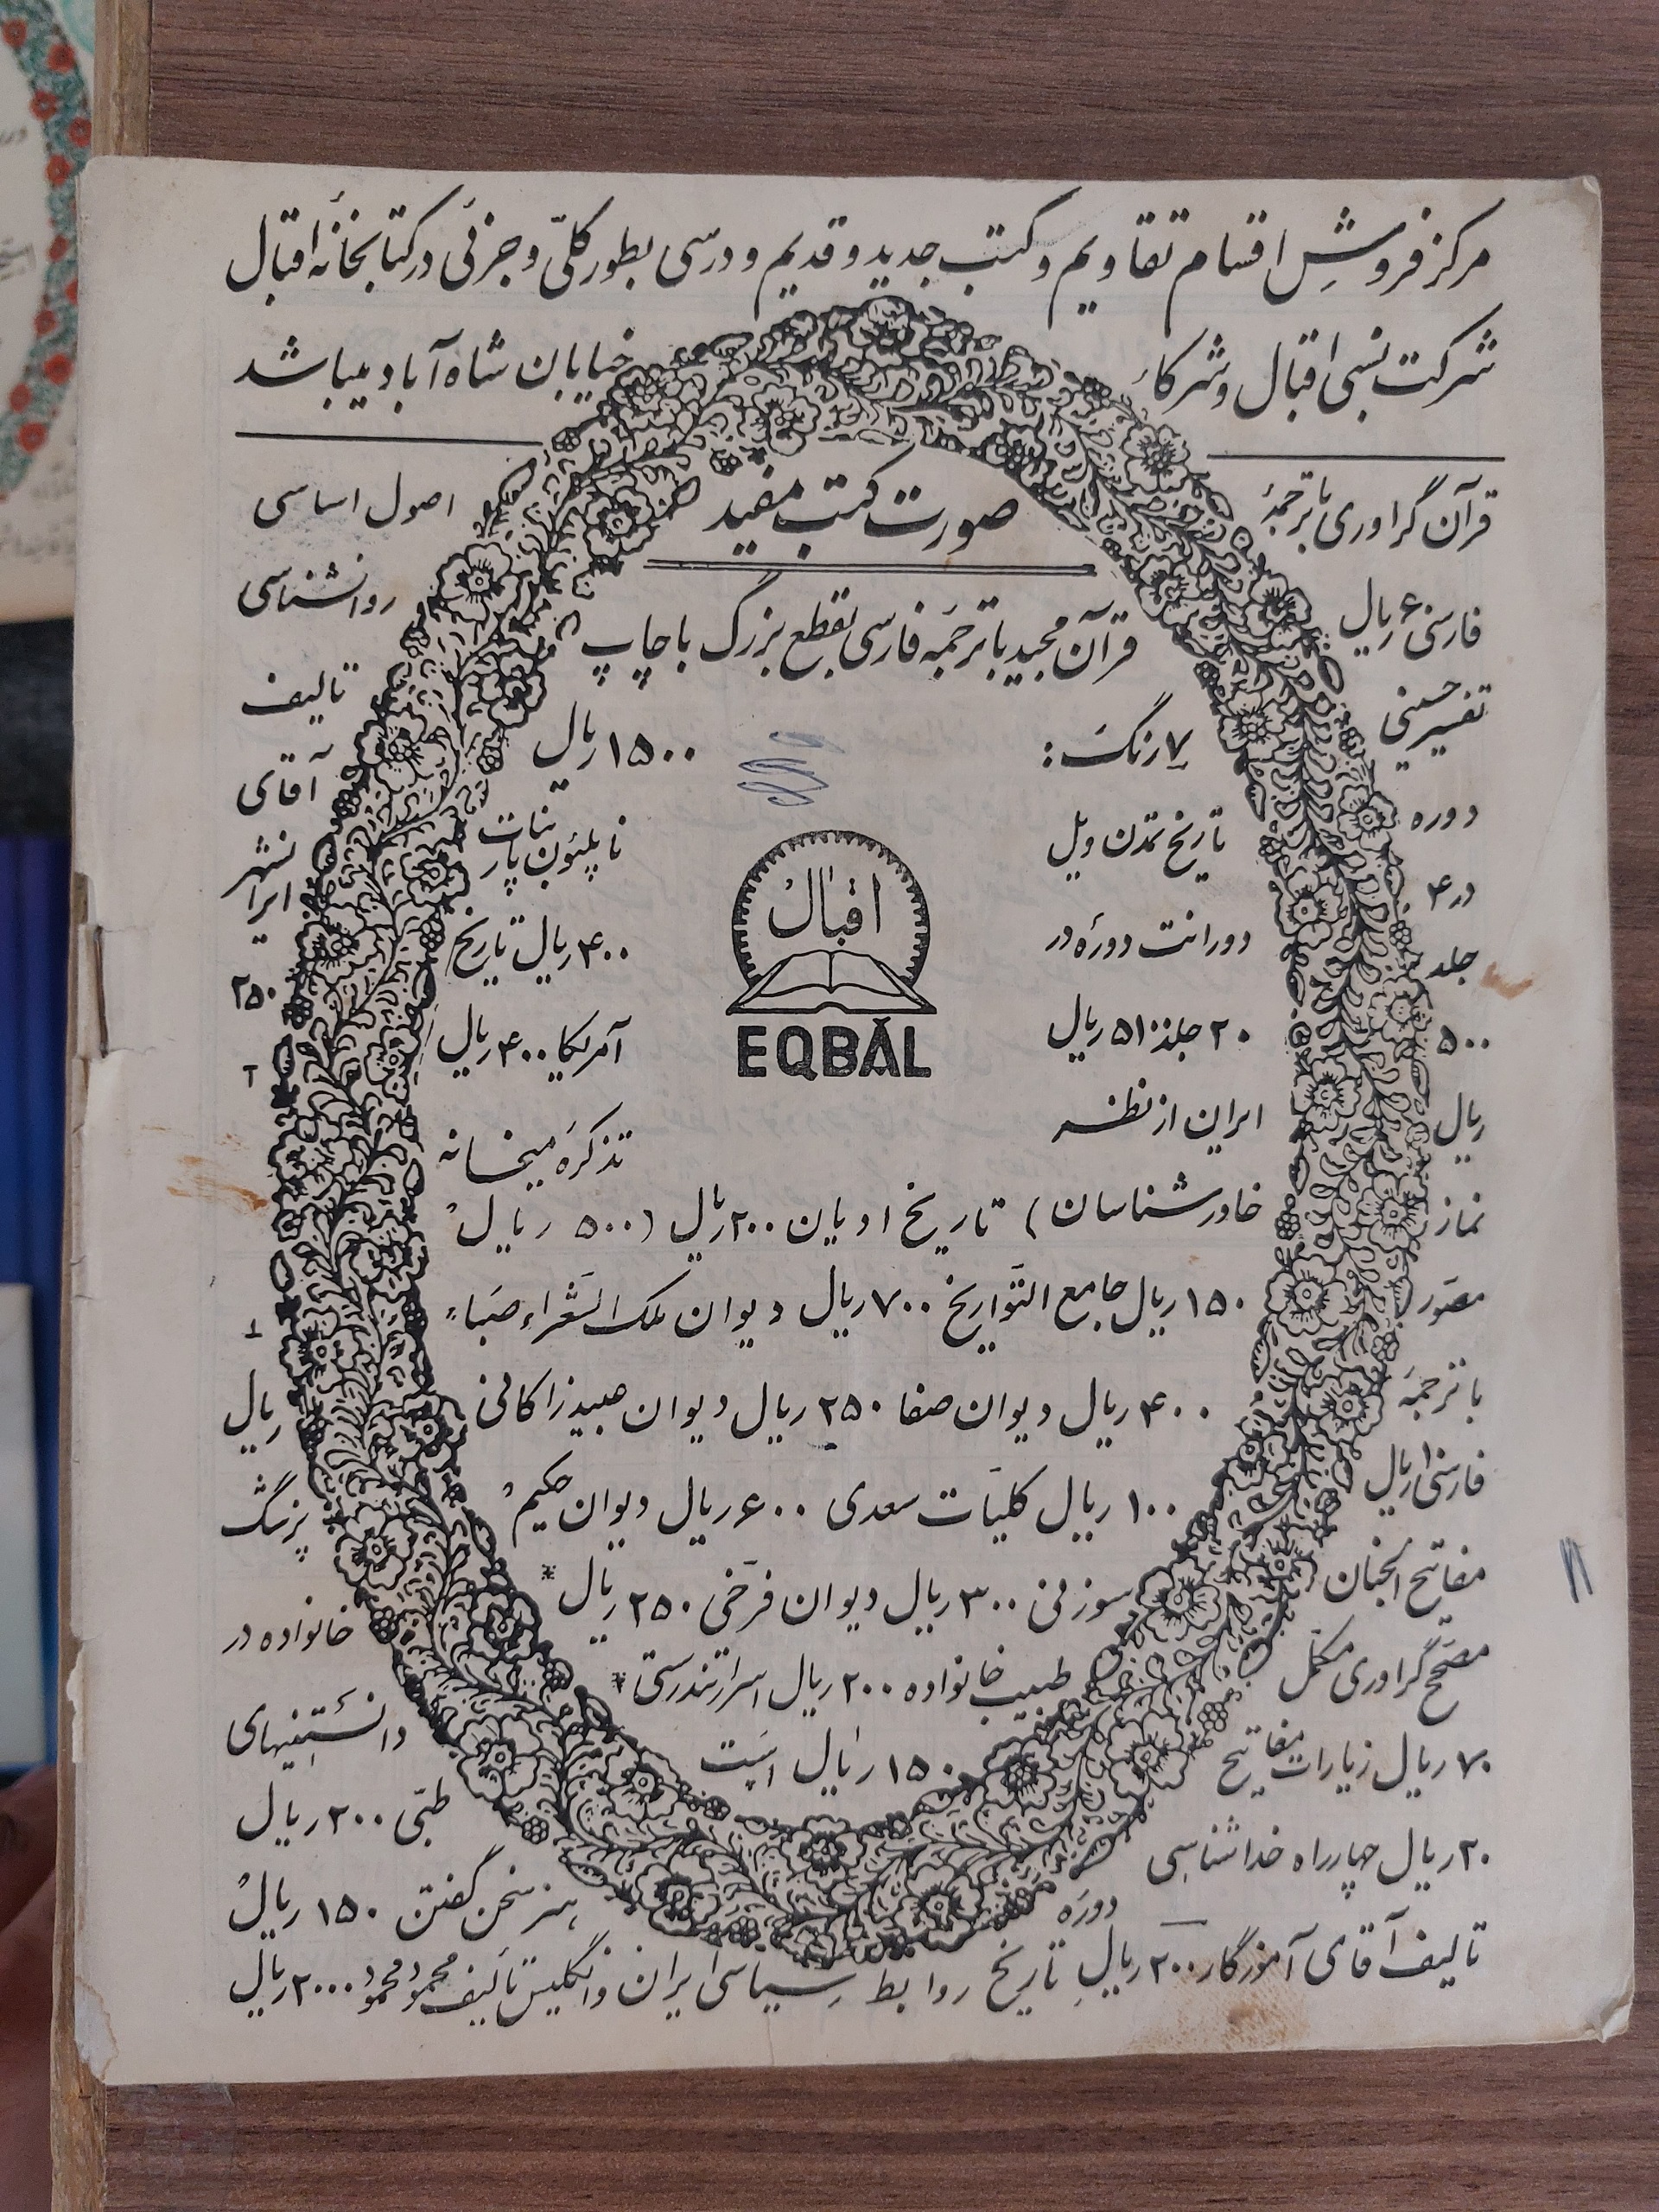 مرکز فروشِ اقسام تقاویم و کتب جدید و قدیم و درسی بطور کلّی و جزئی در کتابخانهٔ اقبال
شرکت نسبی اقبال و شرکاء خیابان شاه آباد میباشد
صورت کتب مفید
قرآن گراوری با ترجمهٔ
فارسی ۶۰ ریال
تفسیر حسینی
دوره
در ۴
جلد
۵۰۰
ریال
نماز
مصوّر
با ترجمهٔ
فارسی ۱۰ ریال
مفاتیح الجنان
مصحّح گراوری مکمّل
۷۰ ریال زیارات مفاتیح
۲۰ ریال چهار راه خداشناسی
دورهٔ
تالیف آقای آموزگار ۲۰۰ ریال تاریخ روابط سیاسی ایران و انگلیس تألیف محمود محمود ۲۰۰۰ ریال
قرآن مجید با ترجمه فارسی بقطع بزرگ با چاپ
۷ رنگ :
۱۵۰۰ ریال
تاریخ تمدن ویل
دورانت دورهٔ در
۲۰ جلد ۵۱۰۰ ریال
ایران از نظر
اقبال
EQBAL
ناپلئون بناپارت
۴۰۰ ریال تاریخ
آمریکا ۴۰۰ ریال
تذکرهٔ میخانه
خاورشناسان ) تاریخ ادیان ۲۰۰ ریال ( ۵۰۰ ریال
۱۵۰ ریال جامع التّواریخ ۷۰۰ ریال دیوان ملک الشّعراء صباء
۴۰۰ ریال دیوان صفا ۲۵۰ ریال دیوان عبید زاکانی
۱۰۰ ریال کلیّات سعدی ۶۰۰ ریال دیوان حکیم
سوزنی ۳۰۰ ریال دیوان فرّخی ۲۵۰ ریال *
طبیب خانواده ۲۰۰ ریال اسرار تندرستی *
۱۵۰ ریال است
اصول اساسی
روانشناسی
تالیف
آقای
ایرانشهر
۲۵۰
ریال
پزشگ
خانواده در
دانستنیهای
طبّی ۲۰۰ ریال
هنر سخن گفتن ۱۵۰ ریال